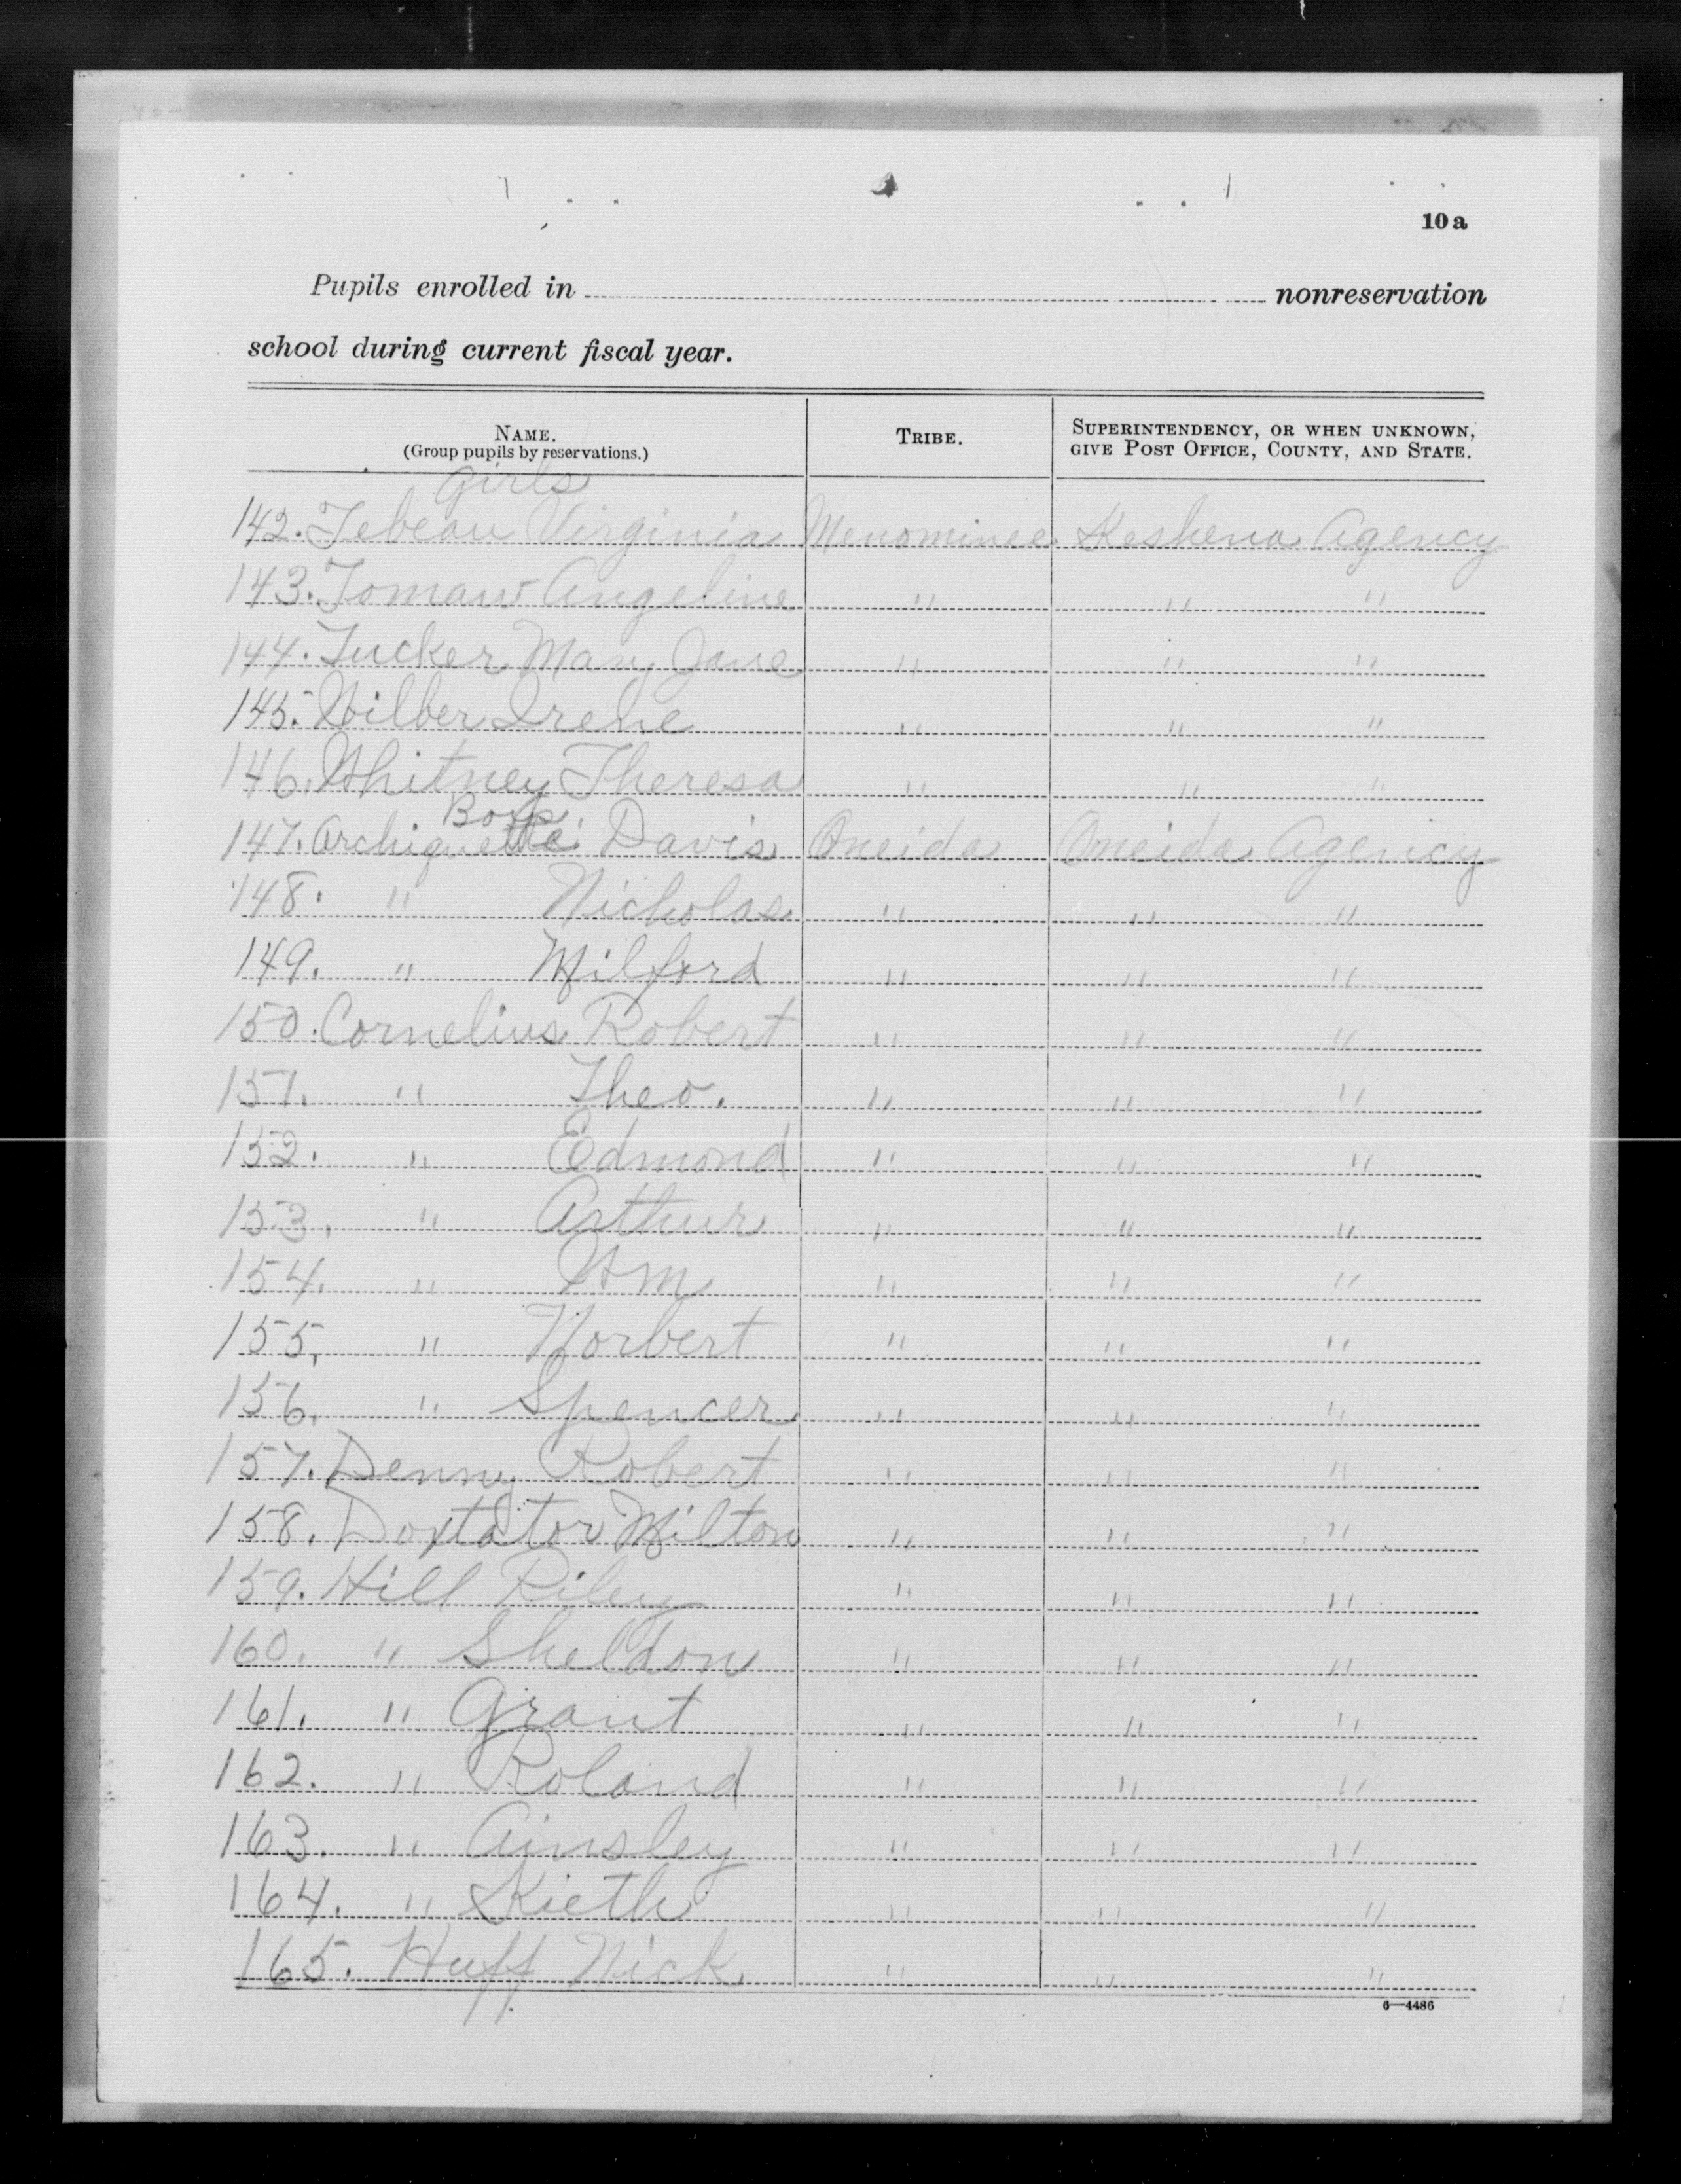 10a
Pupils enrolled in nonreservation
school during current fiscal year.
NAME. TRIBE. SUPERINTENDENCY, OR WHEN UNKNOWN,
(Group pupils by reservations.) GIVE POST OFFICE, COUNTY, AND STATE.
Girls
142. Tebeau Virginia Menominee Keshena Agency
143. Tomaw Angeline " " "
144. Tucker Mary Jane " " "
145. Wilber Irene " " "
146. Whitney Theresa " " "
Boys
147. Archiquette Davis Oneida Oneida Agency
148. " Nicholas " " "
149. " Milford " " "
150. Cornelius Robert " " "
151. " Theo. " " "
152. " Edmond " " "
153. " Arthur " " "
154. " Wm " " "
155. " Norbert " " "
156. " Spencer " " "
157. Denny Robert " " "
158. Doxtator Milton " " "
159. Hill Riley " " "
160. " Sheldon " " "
161. " Grant " " "
162. " Roland " " "
163. " Ainsley " " "
164. " Kieth " " "
165. Huff Nick " " "
6—4486